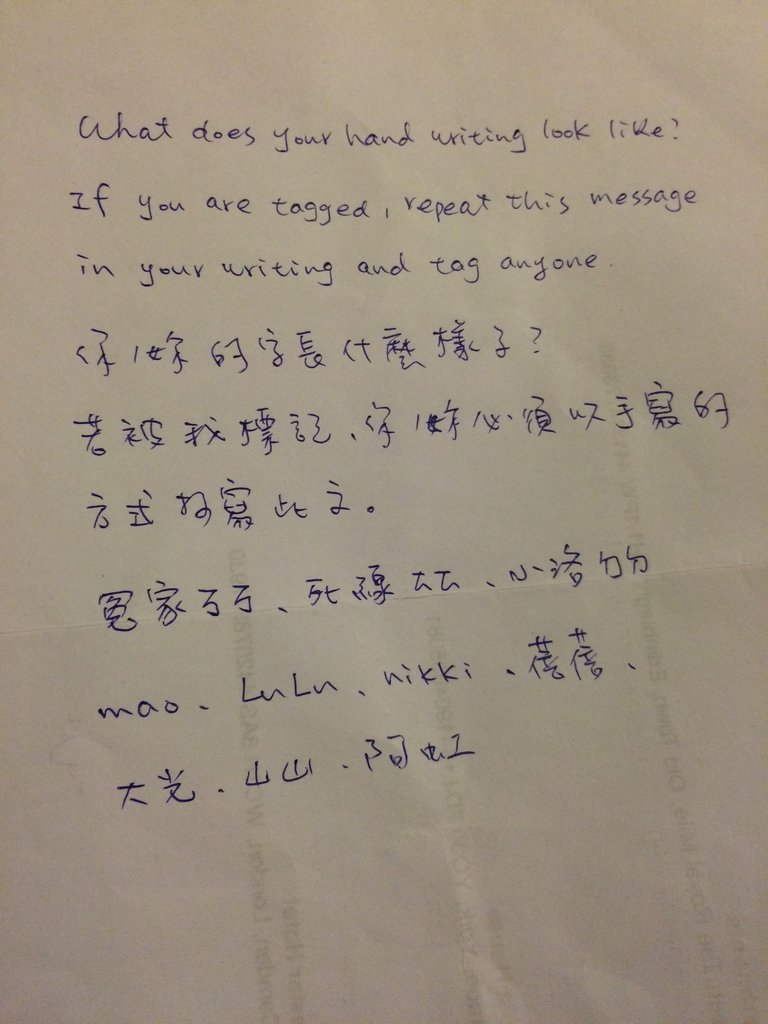 What does your hand writing look like?
If you are tagged, repeat this message
in your writing and tag anyone.
你/妳的字長什麼樣子?
若被我標記、你/妳必須以手寫的
方式抄寫此文。
冤家ㄎㄎ、死線ㄊㄊ、小洛ㄅㄅ
mao、LuLu、nikki、蓓蓓、
大光、山山、阿虹